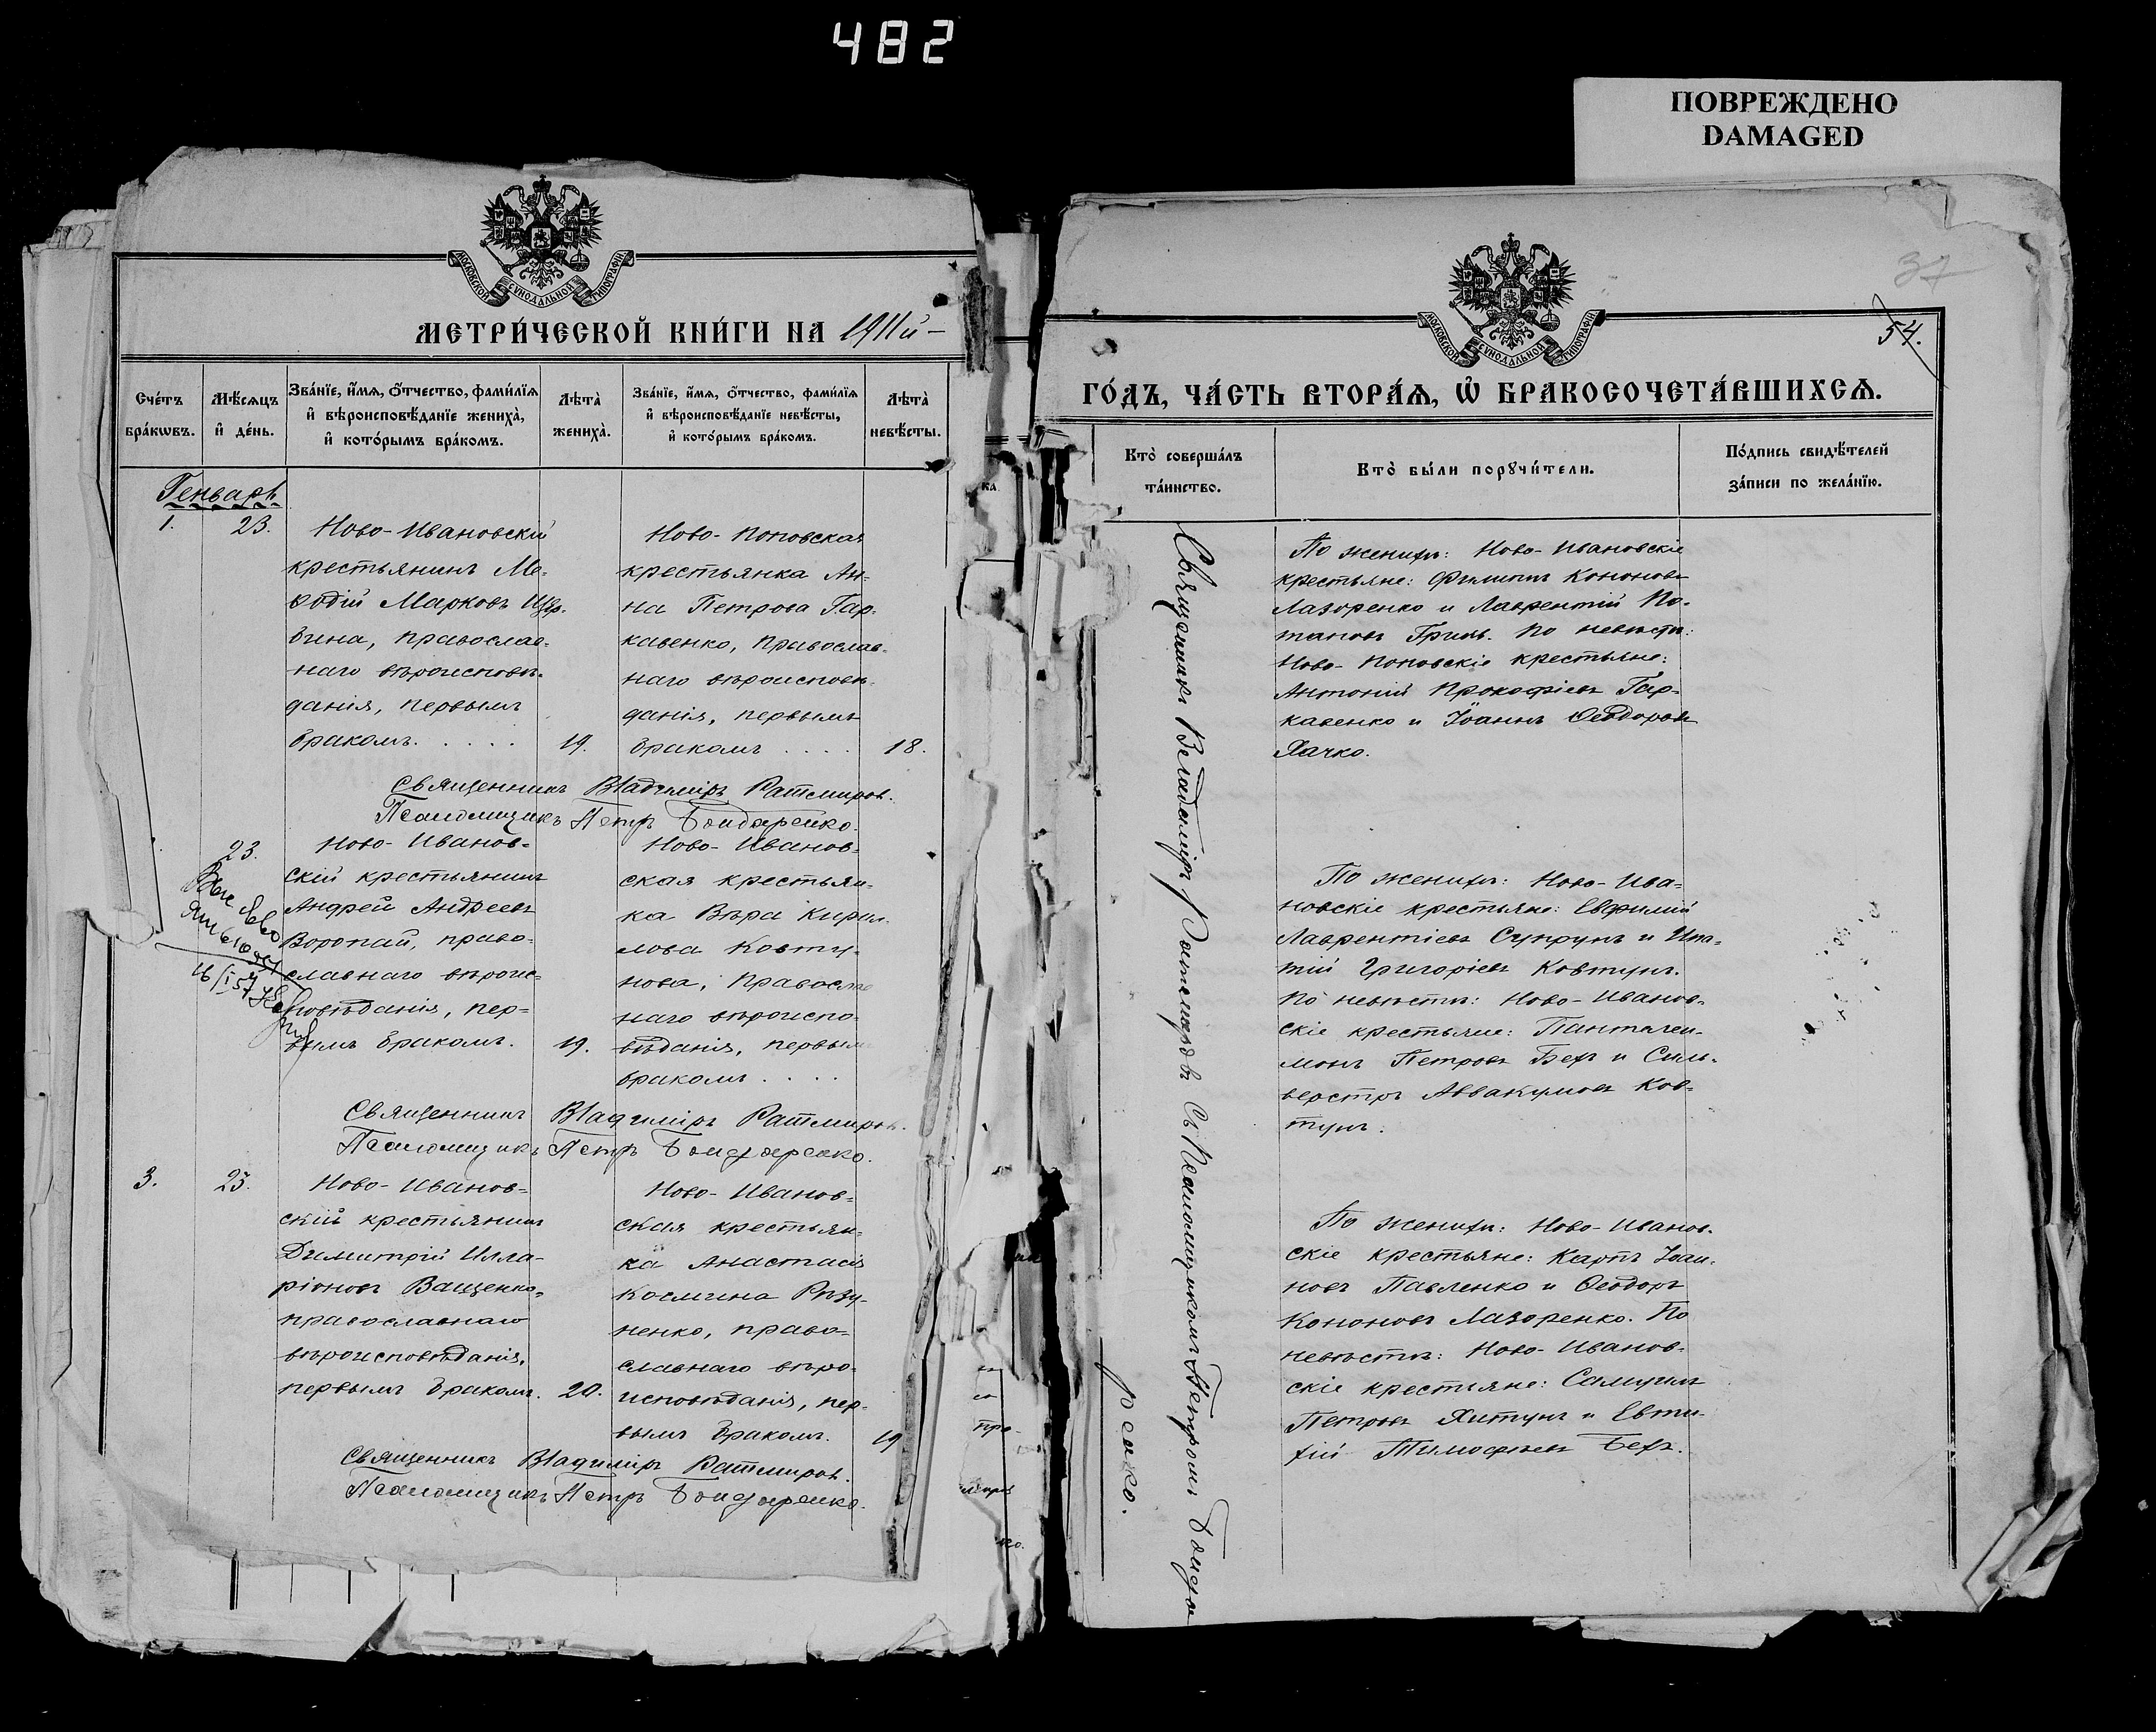 482
ПОВРЕЖДЕНО
DAMAGED
МОСКОВСКОЙ СѴНОДАЛЬНОЙ ТИПОГРАФІИ
МЕТРИ́ЧЕСКОЙ КНИ́ГИ НА 1911й-
Сче́тъ бра́кѡвъ.
Мѣ́сѧцъ и҆ де́нь.
Зва́нїе, и҆́мѧ, ѻ҆́тчество, фами́лїѧ
и҆ вѣроисповѣ́данїе жениха̀,
и҆ кото́рымъ бра́комъ.
Лѣта̀ жениха̀.
Зва́нїе, и҆́мѧ, ѻ҆́тчество, фами́лїѧ
и҆ вѣроисповѣ́данїе невѣ́сты,
и҆ кото́рымъ бра́комъ.
Лѣта̀ невѣ́сты.
Генварь
1.
23.
Ново-Ивановскій
крестьянинъ Ме-
ѳодій Марковъ
православ-
наго вѣроисповѣ-
данія, первымъ
бракомъ. . . . .
19.
Ново-Поповская
крестьянка Ан-
на Петрова Гар-
кавенко, православ-
наго вѣроисповѣ-
данія, первымъ
бракомъ . . . .
18.
Священникъ Владиміръ Ратмировъ.
Псаломщикъ Петръ Бондаренко.
23.
Ново-Иванов-
скій крестьянинъ
Андрей Андреевъ
Воропай, право-
славнаго вѣроис-
повѣданія, пер-
вымъ бракомъ.
19.
Ново-Иванов-
ская крестьян-
ка Вѣра Кирил-
лова Ковту-
нова, православ
наго вѣроиспо-
вѣданія, первымъ
бракомъ . . . .
16/I 57
Священникъ Владиміръ Ратмировъ.
Псаломщикъ Петръ Бондаренко.
3.
23.
Ново-Иванов-
скій крестьянинъ
Димитрій Илла-
ріоновъ Ващенко,
православнаго
вѣроисповѣданія,
первымъ бракомъ.
20.
Ново-Иванов-
ская крестьян-
ка Анастасія
Космина Рѣзу-
ненко, право-
славнаго вѣро-
исповѣданія, пер-
вымъ бракомъ.
19
Священникъ Владиміръ Ратмировъ.
Псаломщикъ Петръ Бондаренко.
37
54.
МОСКОВСКОЙ СѴНОДАЛЬНОЙ ТИПОГРАФІИ
ГО́ДЪ, ЧА́СТЬ ВТОРА́Ѧ, Ѡ҆ БРАКОСОЧЕТА́ВШИХСѦ.
Кто̀ соверша́лъ
та́инство.
Кто̀ бы́ли порꙋчи́тели.
По́дпись свидѣ́телей
за́писи по жела́нїю.
Священникъ Владиміръ Ратмировъ съ Псаломщикомъ Петромъ Бонда
ренко.
По женихѣ: Ново-Ивановскіе
крестьяне: Филиппъ Кононовъ
Лазоренко и Лаврентій По-
таповъ Гриць. По невѣстѣ:
Ново-Поповскіе крестьяне:
Антоній Прокофіевъ Гар-
кавенко и Іоаннъ Ѳеодоровъ
Хачко.
По женихѣ: Ново-Ива-
новскіе крестьяне: Евфимій
Лаврентіевъ Супрунъ и Ипа-
тій Григоріевъ Ковтунъ.
По невѣстѣ: Ново-Иванов-
скіе крестьяне: Пантелеи-
монъ Петровъ Бехъ и Силь-
верстръ Аввакумовъ Ков-
тунъ.
По женихѣ: Ново-Иванов-
скіе крестьяне: Карпъ Іоан-
новъ Павленко и Ѳеодоръ
Кононовъ Лазоренко. По
невѣстѣ: Ново-Иванов-
скіе крестьяне: Самуилъ
Петровъ Яхтунъ и Евти-
хій Тимофѣевъ Бехъ.